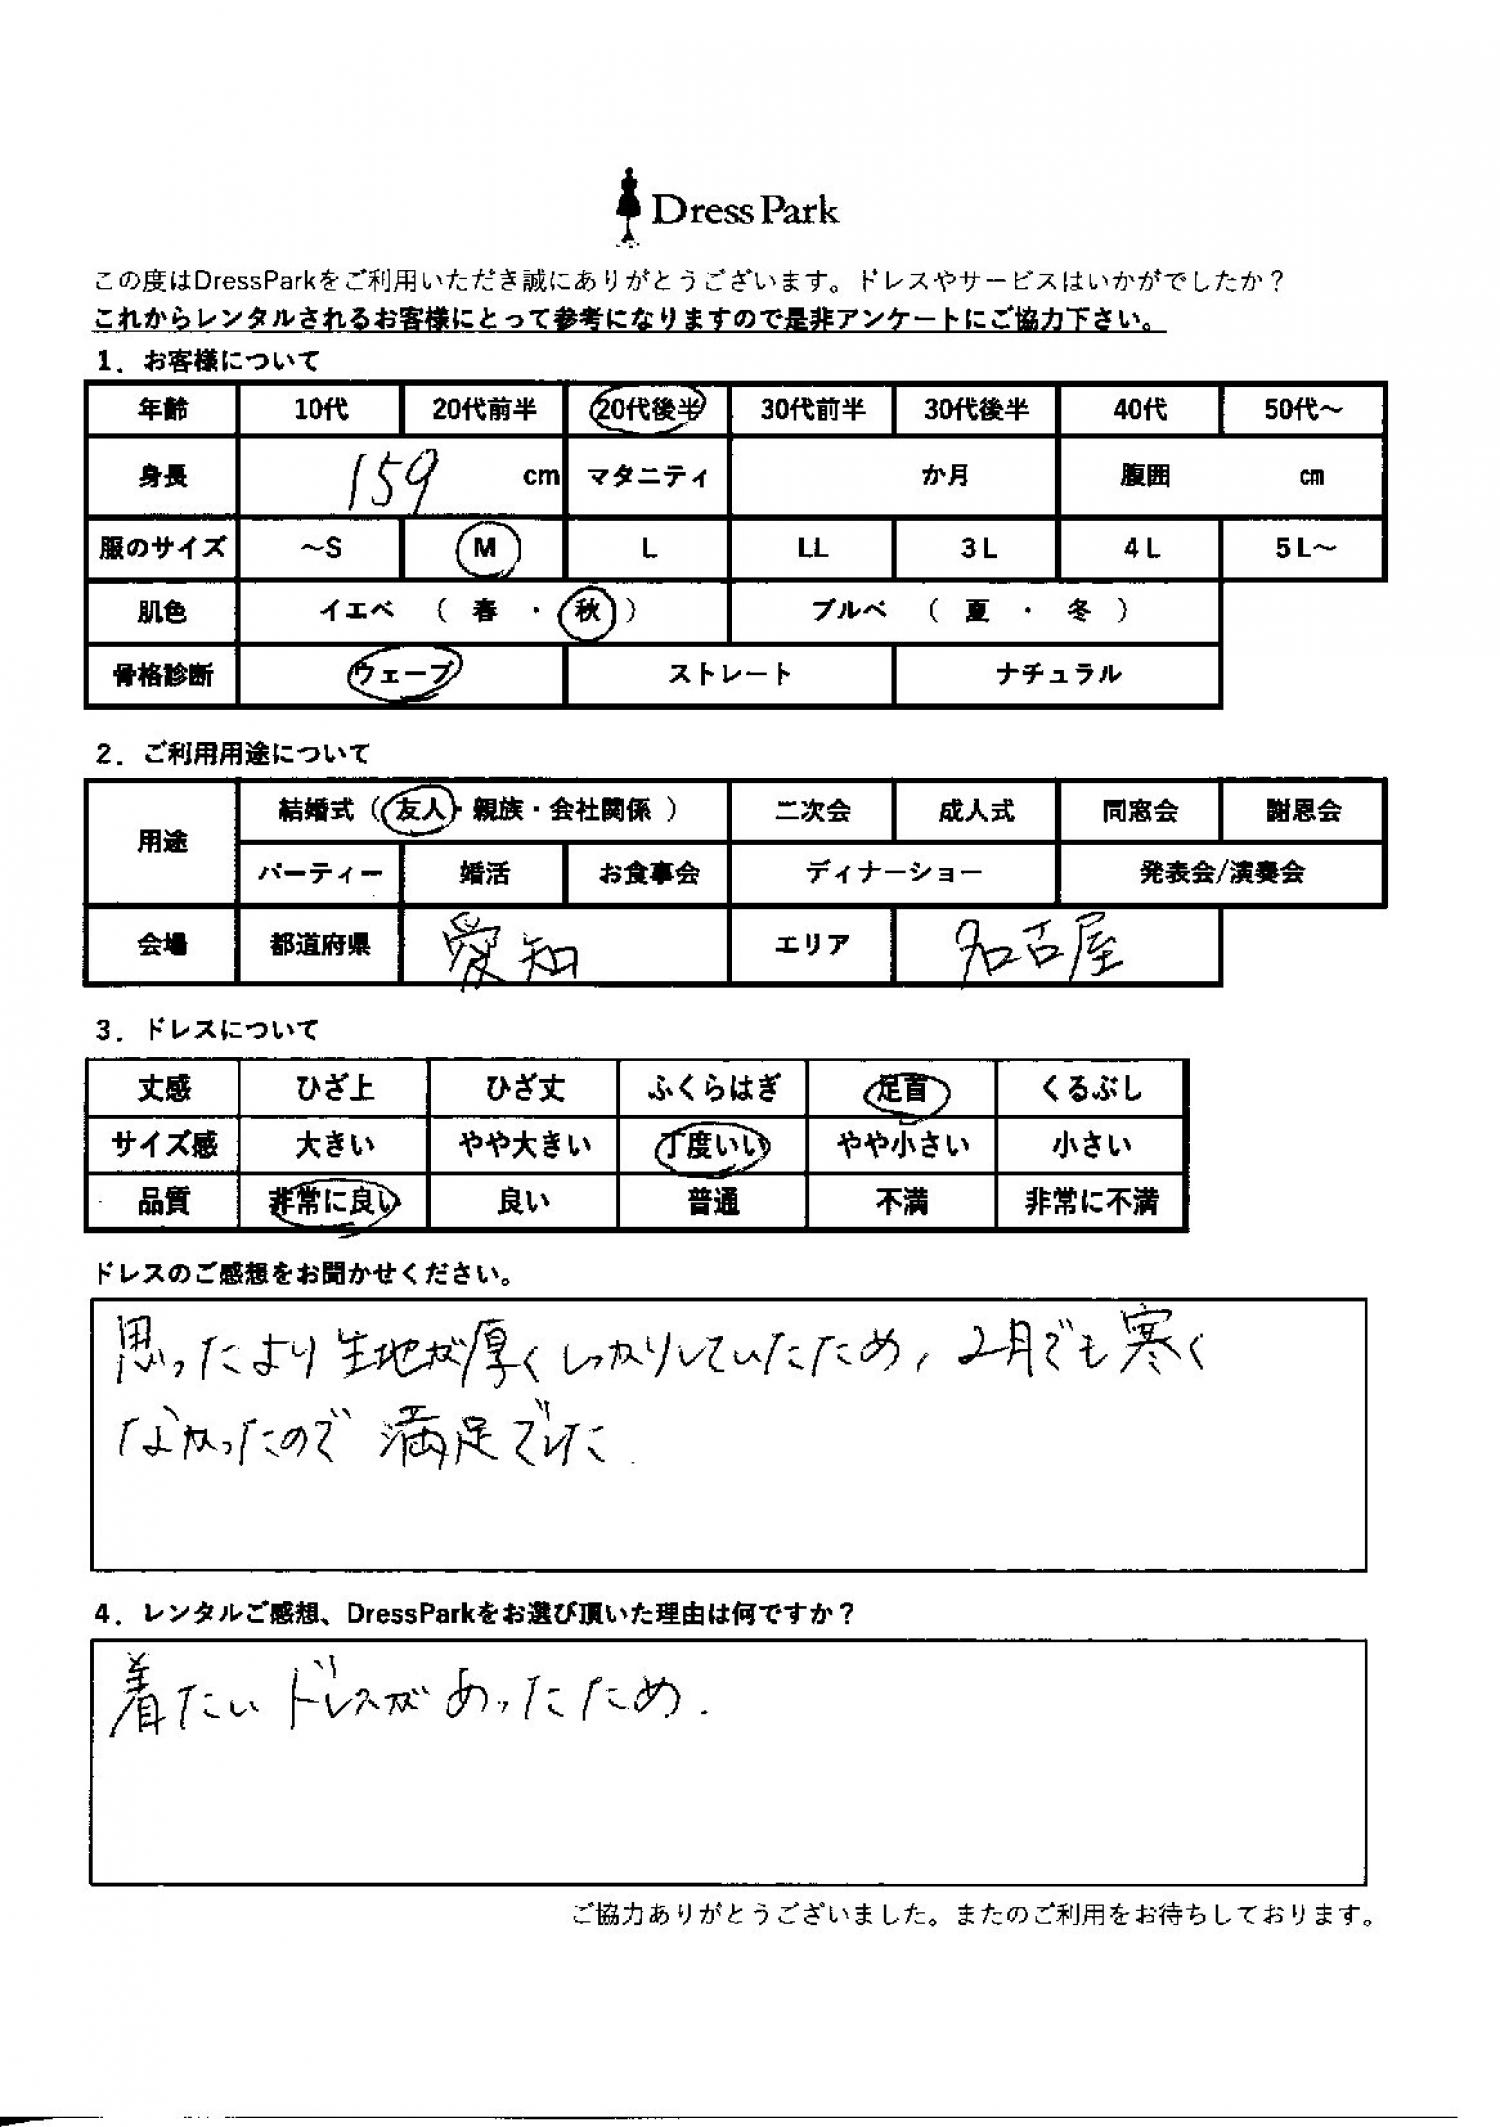 Dress Park
この度はDressParkをご利用いただき誠にありがとうございます。ドレスやサービスはいかがでしたか？
これからレンタルされるお客様にとって参考になりますので是非アンケートにご協力下さい。
1．お客様について
年齢 10代 20代前半 20代後半 30代前半 30代後半 40代 50代～
身長 159 cm マタニティ か月 腹囲 ㎝
服のサイズ ～S M L LL 3L 4L 5L～
肌色 イエベ （ 春 ・ 秋 ） ブルベ （ 夏 ・ 冬 ）
骨格診断 ウェーブ ストレート ナチュラル
2．ご利用用途について
用途 結婚式（ 友人・親族・会社関係 ） 二次会 成人式 同窓会 謝恩会
パーティー 婚活 お食事会 ディナーショー 発表会/演奏会
会場 都道府県 愛知 エリア 名古屋
3．ドレスについて
丈感 ひざ上 ひざ丈 ふくらはぎ 足首 くるぶし
サイズ感 大きい やや大きい 丁度いい やや小さい 小さい
品質 非常に良い 良い 普通 不満 非常に不満
ドレスのご感想をお聞かせください。
思ったより生地が厚くしっかりしていたため、2月でも寒く
なかったので満足でした.
4．レンタルご感想、DressParkをお選び頂いた理由は何ですか？
着たいドレスがあったため.
ご協力ありがとうございました。またのご利用をお待ちしております。